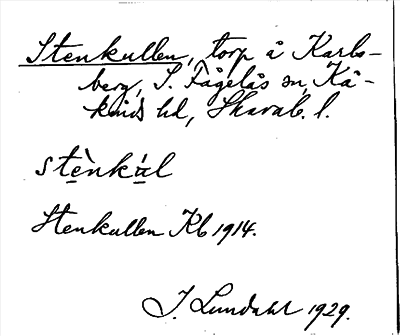 Stenkullen, torp å Karls-
berg, S. Fågelås sn, Kå-
kinds hd, Skarab. l.
stènkúl
Stenkullen Kb 1914.
J. Lundahl 1929.